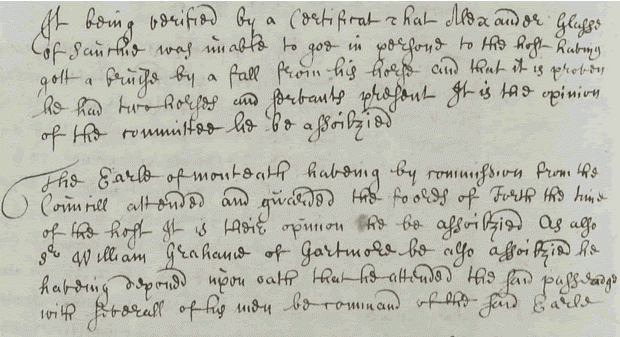 It being verified by a Certificat that Alexander Glasse
of Sauchie was unable to goe in persone to the host haveing
gott a bruise by a fall from his horse and that it is proven
he had two horses and servants present It is the opinion
of the committee he be assoilzied
The Earle of monteath haveing by commission from the
Councill attended and guarded the foords of Forth the time
of the host It is their opinion he be assoilzied As also
Sr William Grahame of Gartmore be also assoilzied he
haveing deponed upon oath that he attended the said passadge
with severall of his men be command of the said Earle